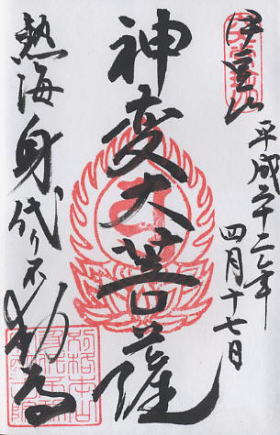 伊豆山
平成二十二年
四月十七日
神変大菩薩
熱海身代り不動尊